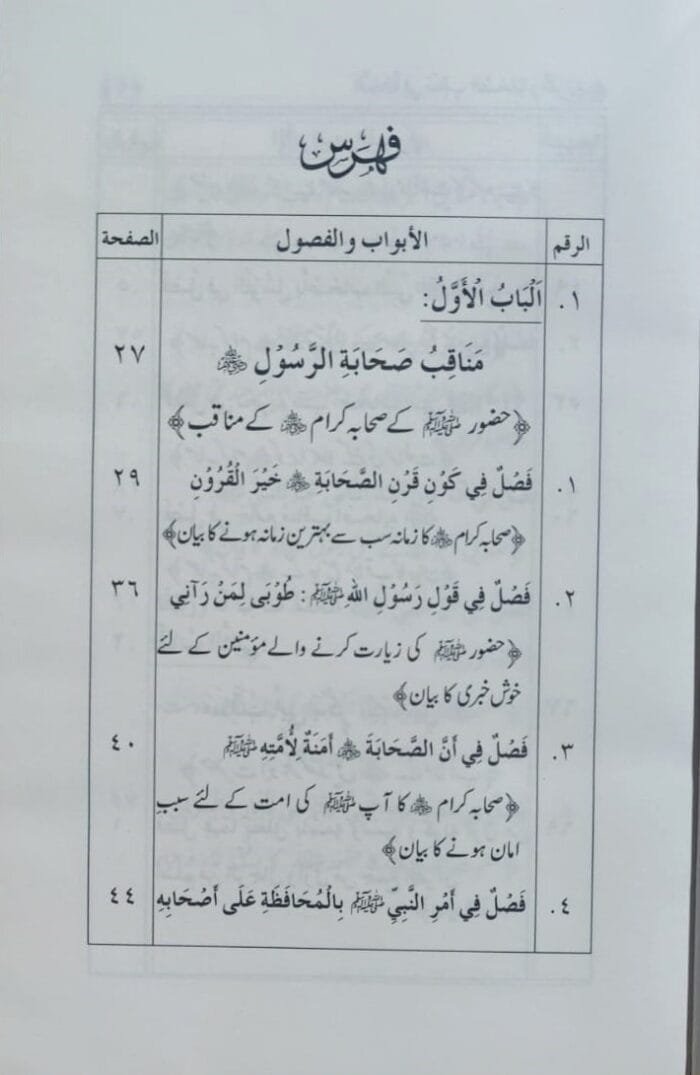 فهرس
الرقم الأبواب والفصول الصفحة
١. اَلْبَابُ الْأَوَّلُ:
مَنَاقِبُ صَحَابَةِ الرَّسُوْلِ ﷺ ٢٧
﴿حضور ﷺ کے صحابہ کرام ﷺ کے مناقب﴾
١. فَصْلٌ فِي كَوْنِ قَرْنِ الصَّحَابَةِ خَيْرَ الْقُرُوْنِ ٢٩
﴿صحابہ کرام کا زمانہ سب سے بہترین زمانہ ہونے کا بیان﴾
٢. فَصْلٌ فِي قَوْلِ رَسُوْلِ اللهِ ﷺ: طُوْبَى لِمَنْ رَآنِي ٣٦
﴿حضور ﷺ کی زیارت کرنے والے مؤمنین کے لئے
خوش خبری کا بیان﴾
٣. فَصْلٌ فِي أَنَّ الصَّحَابَةَ أَمَنَةٌ لِأُمَّتِهِ ﷺ ٤٠
﴿صحابہ کرام کا آپ ﷺ کی امت کے لئے سببِ
امان ہونے کا بیان﴾
٤. فَصْلٌ فِي أَمْرِ النَّبِيِّ ﷺ بِالْمُحَافَظَةِ عَلَى أَصْحَابِهِ ٤٤